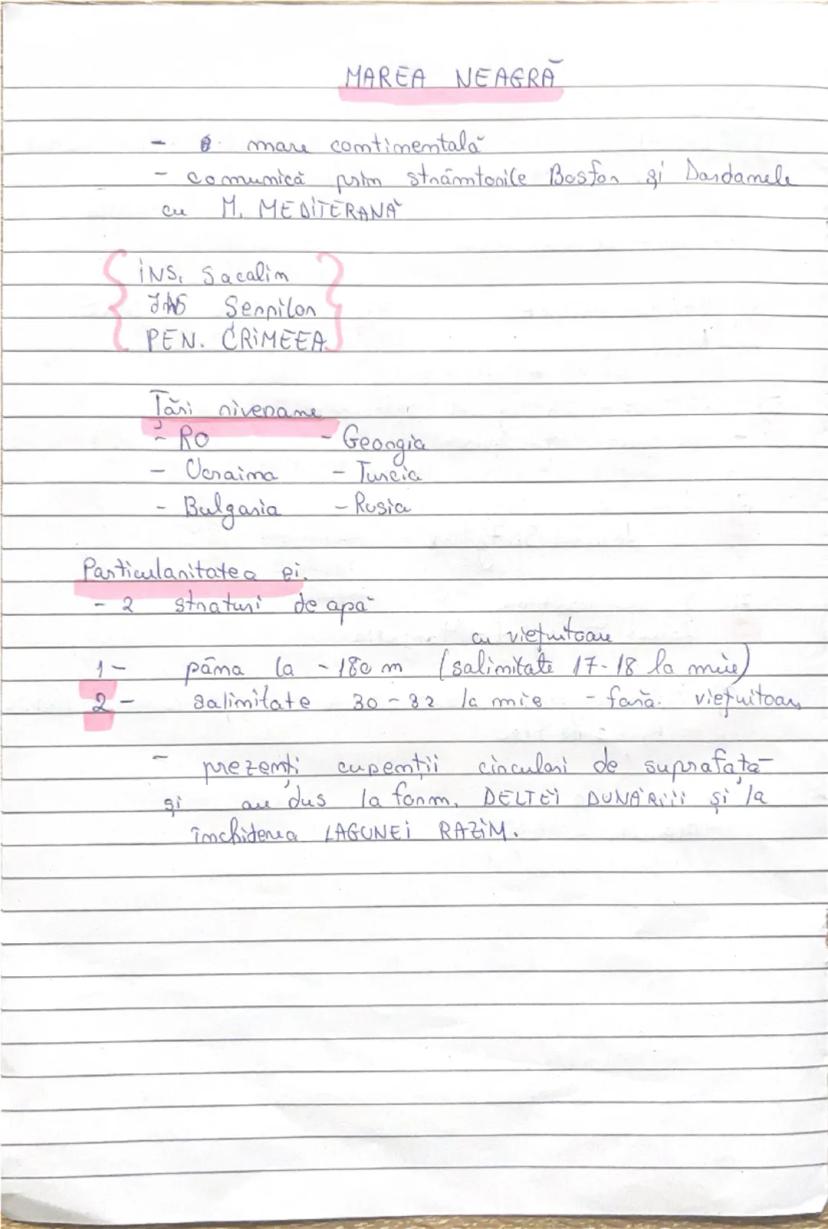 MAREA NEAGRĂ
- o mare continentală
- comunică prin strâmtorile Bosfor și Dardanele
cu M. MEDITERANĂ
INS. Sacalin
INS Serpilor
PEN. CRIMEEA
Țări riverane
- RO - Georgia
- Ucraina - Turcia
- Bulgaria - Rusia
Particularitatea ei.
- 2 straturi de apă
cu viețuitoare
1- până la -180 m (salinitate 17-18 la mie)
2- salinitate 30-32 la mie - fară viețuitoare
- prezenți curenții circulari de suprafață
și au dus la form. DELTEI DUNĂRIII și la
închiderea LAGUNEI RAZIM.